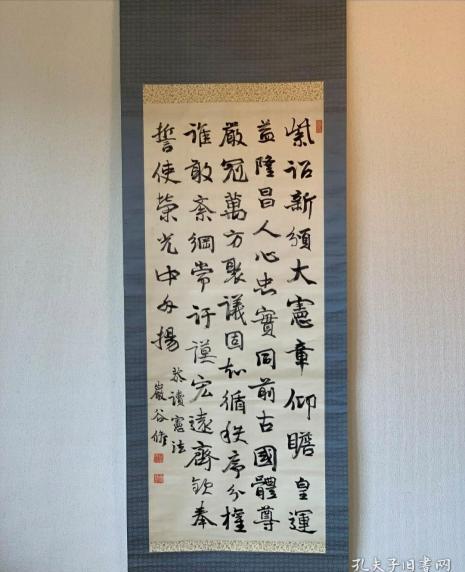 紫詔新頒大憲章仰瞻皇運
益隆昌人心忠實同前古國體尊
嚴冠萬方聚議固知循秩序分權
誰敢紊綱常訏謨宏遠齊欽奉
誓使榮光中外揚
恭讀憲法
巖谷修
孔夫子旧书网